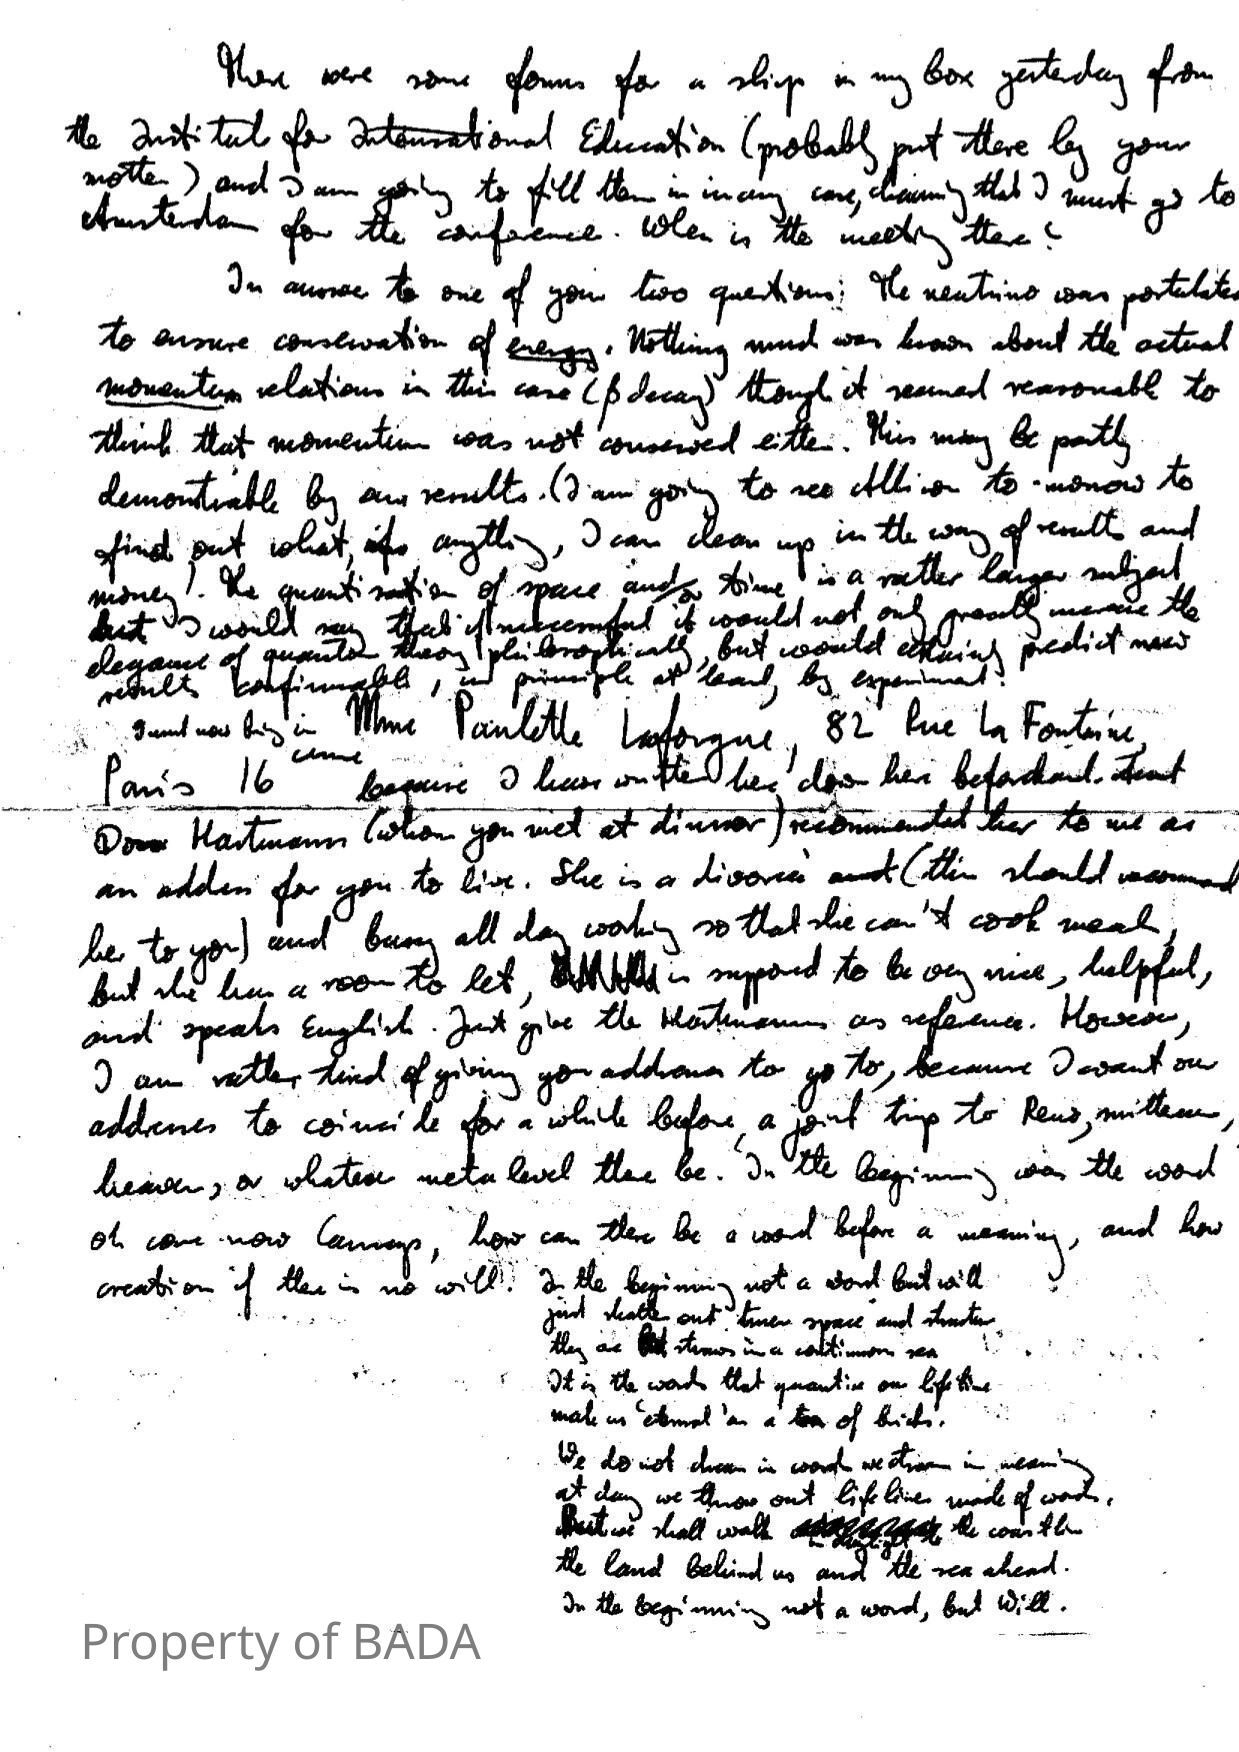 There were some forms for a ship in my box yesterday from
the Institut for International Education (probably put there by your
mother) and I am going to fill them in in any case, claiming that I must go to
Amsterdam for the conference. When is the meeting there?
In answer to one of your two questions: The neutrino was postulated
to ensure conservation of energy. Nothing much was known about the actual
momentum relations in this case (β decay) though it seemed reasonable to
think that momentum was not conserved either. This may be partly
demonstrable by our results. (I am going to see Allison to-morrow to
find out what, if anything, I can clean up in the way of results and
money). The quantisation of space and/or time is a rather larger subject
but I would say that if successful it would not only greatly increase the
elegance of quantum theory philosophically, but would certainly predict new
results confirmable, in principle at least, by experiment.
I must now bring in Mme Paulette Laforgue, 82 Rue La Fontaine,
Paris 16 because I have written her down here beforehand.
Dora Hartmann (whom you met at dinner) recommended her to me as
an address for you to live. She is a divorcée and (this should recommend
her to you) and busy all day working so that she can't cook meals,
but she has a room to let, is supposed to be very nice, helpful,
and speaks English. Just give the Hartmanns as reference. However,
I am rather tired of giving you addresses to go to, because I want our
addresses to coincide for a while before a joint trip to Reno,
heaven, or whatever meta level there be. 'In the beginning was the word
oh come now, how can there be a word before a meaning, and how
creation if there is no will. In the beginning not a word but will
just shatter out time space and
they are straws in a continuous sea
It is the words that quantise our life line
make us 'eternal' as a ton of bricks.
We do not dream in words we dream in meaning
at day we throw out life lines made of words.
But we shall walk in daylight to the coast
the land behind us and the sea ahead.
In the beginning not a word, but Will.
Property of BADA